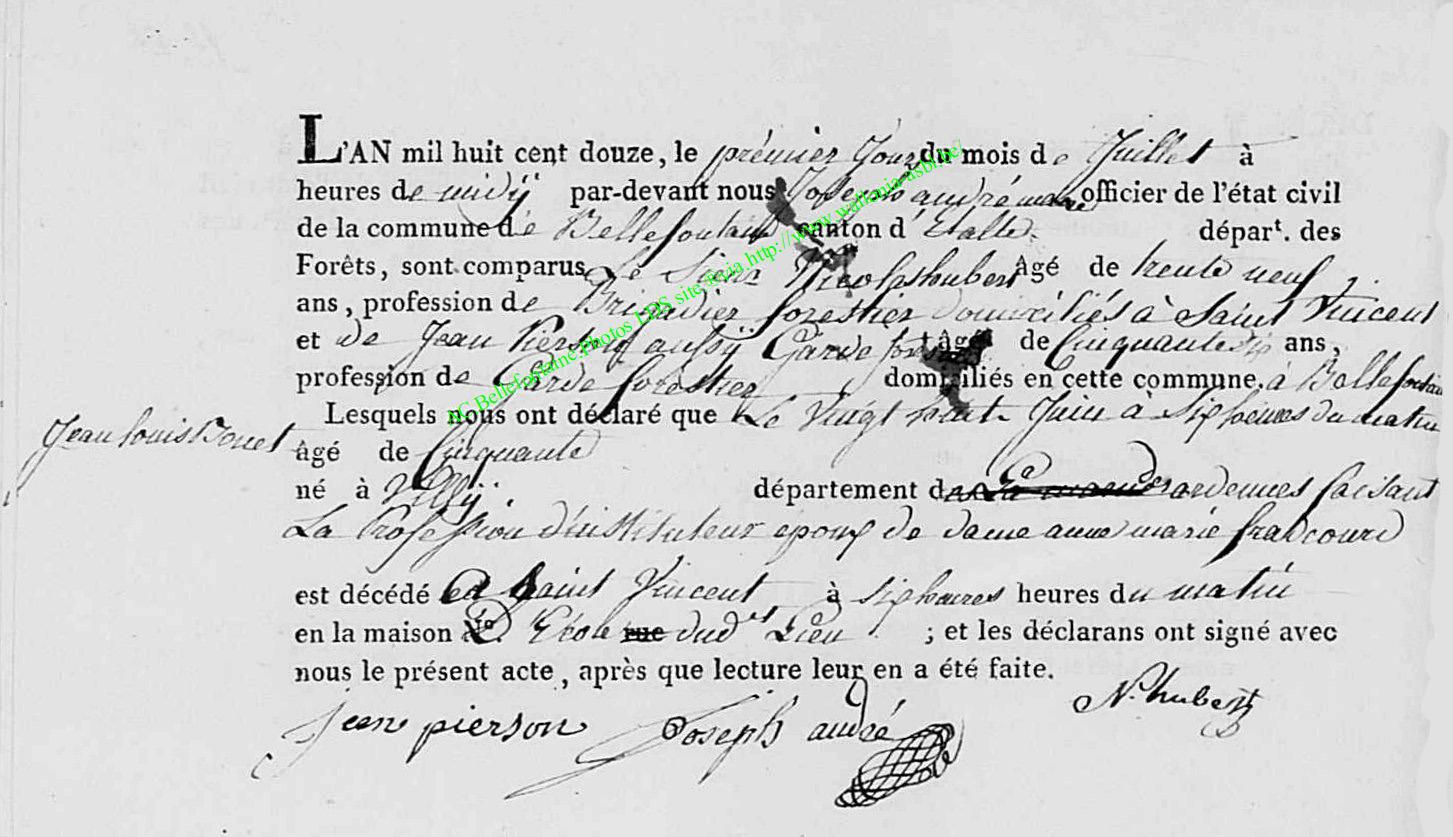 L'AN mil huit cent douze, le prémier Jour du mois de Juillet à
heures de midÿ par-devant nous Joseph andré maire officier de l'état civil
de la commune de Bellefontaine canton d'Etalle. départ. des
Forêts, sont comparus Le Sieur Nicolas hubert âgé de trente neuf
ans, profession de Brigadier forestier domiciliés à Saint Vincent
et de Jean Pierson aussÿ Garde forestier âgé de Cinquante six ans,
profession de Garde forestier domiciliés en cette commune. à Bellefontaine
Lesquels nous ont déclaré que Le Vingt Juin à Six heures du matin
Jean Louis
âgé de Cinquante
né à Villÿ. département des ardennes faisant
La Profession d'instituteur epoux de dame anne marie francourd
est décédé a Saint Vincent à Six heures heures du matin
en la maison d'Ecole rue dud. Lieu ; et les déclarans ont signé avec
nous le présent acte, après que lecture leur en a été faite.
N. hubert
jean pierson Joseph andré
AC Bellefontaine.Photos LDS site furia http://www.wallonia-asbl.be/